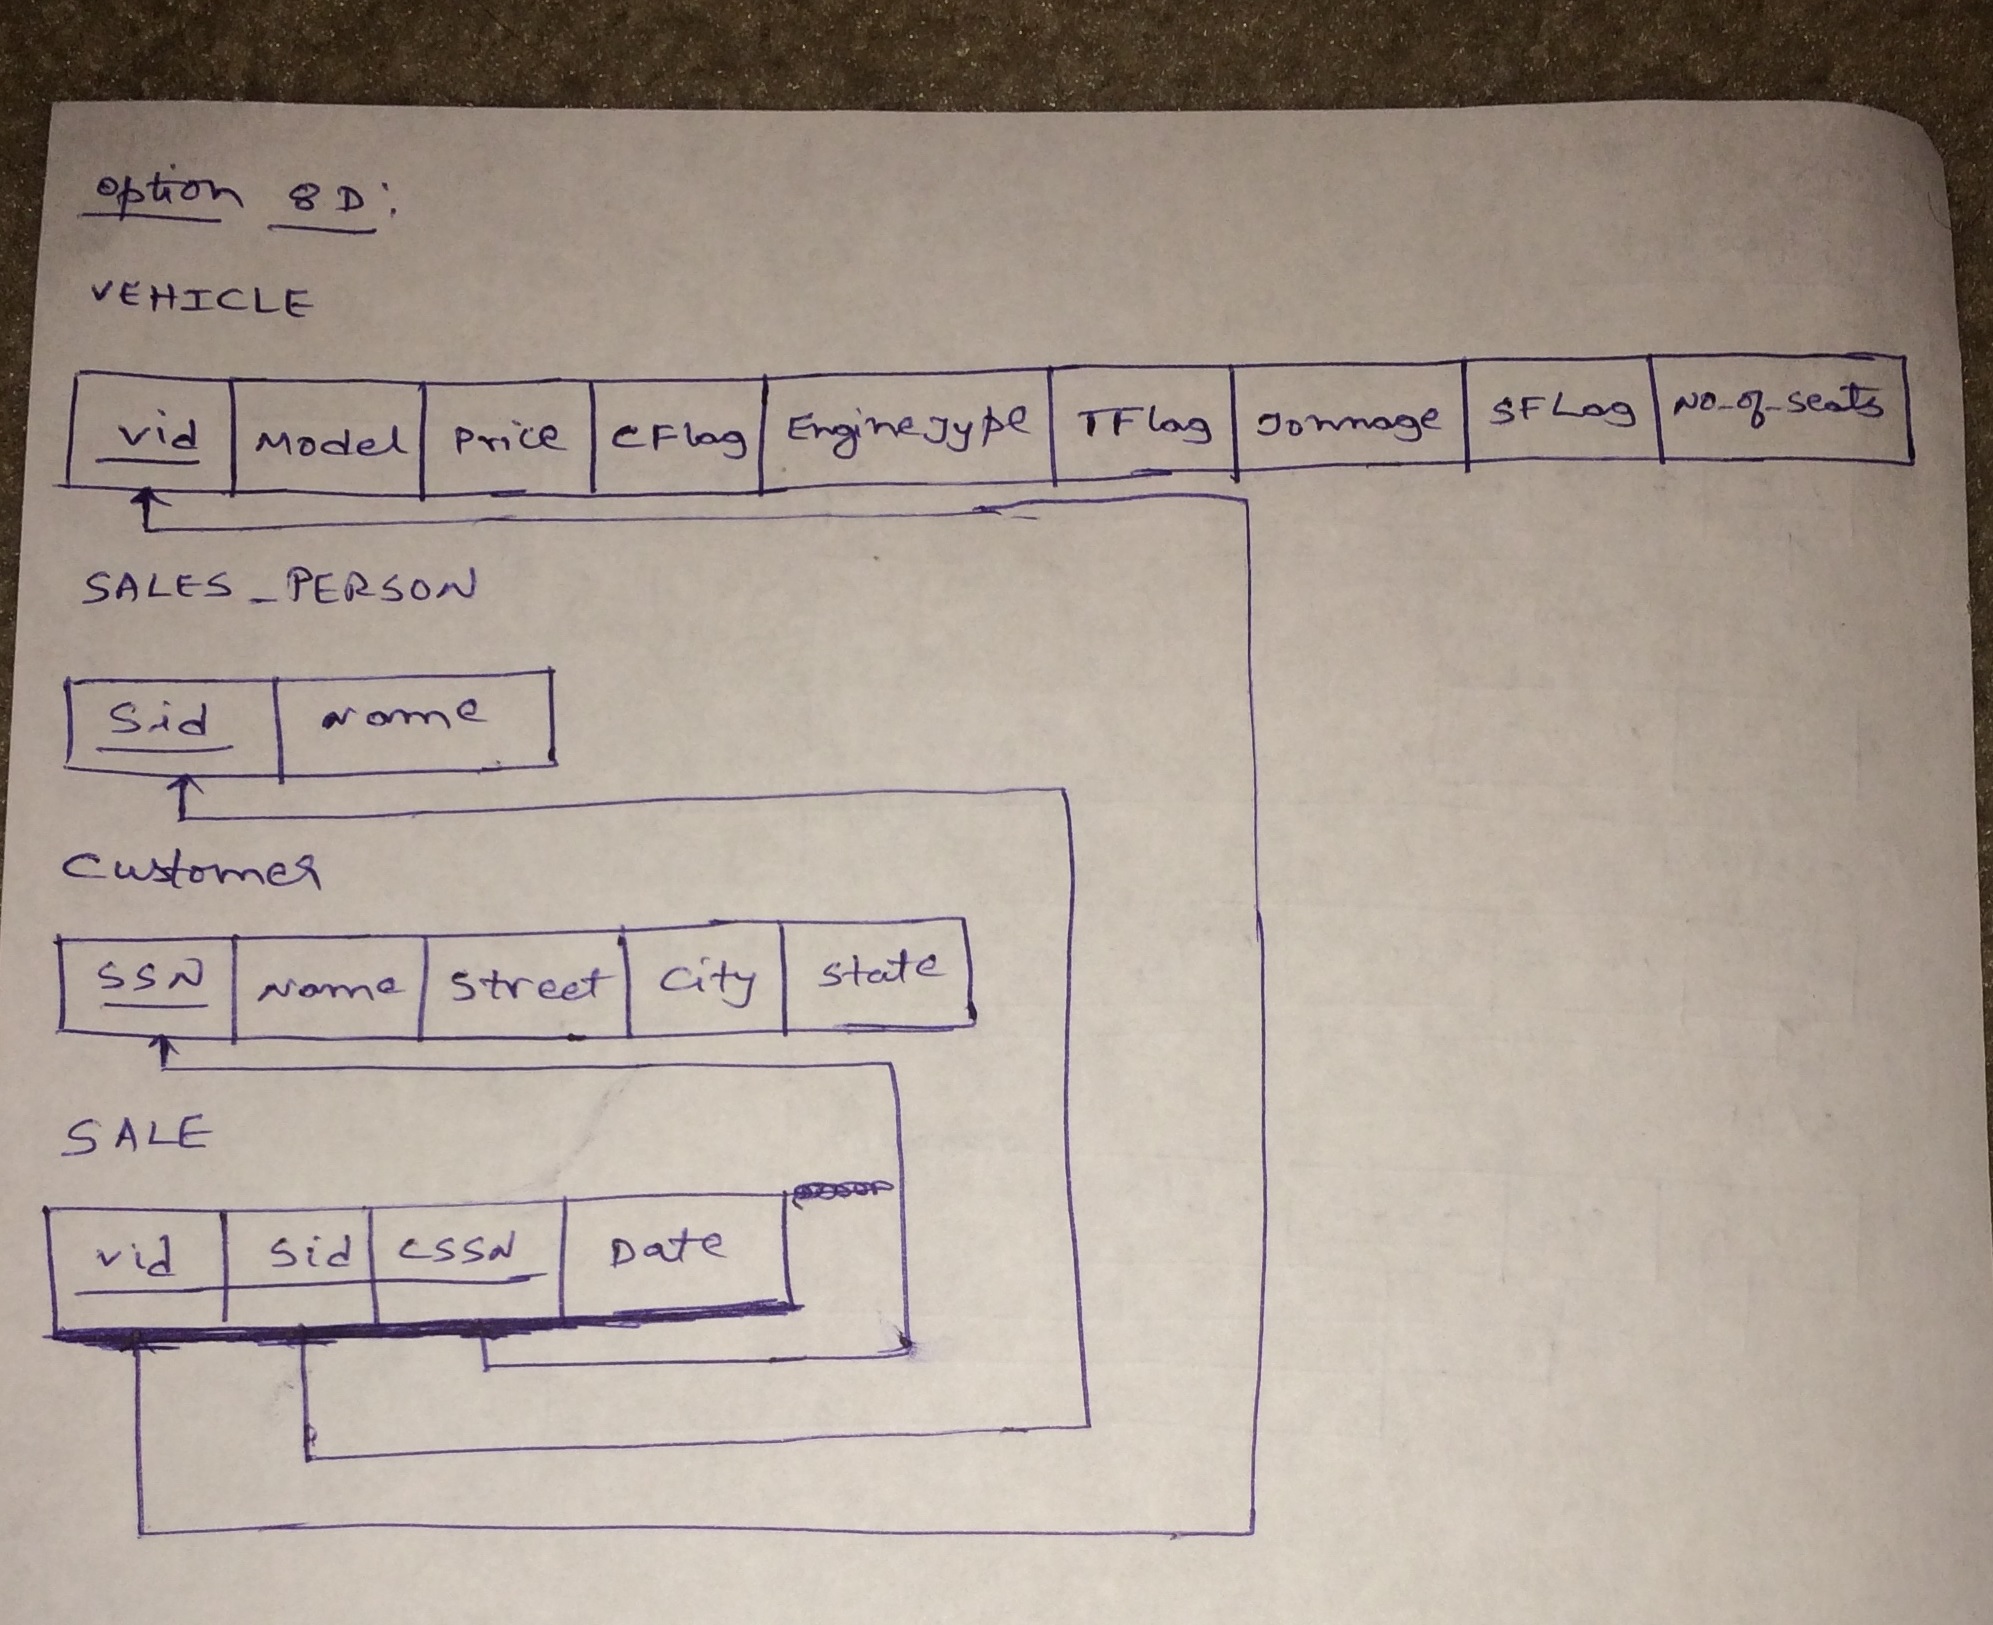 option 8D:
VEHICLE
vid Model Price CFlag EngineType TFlag Tonnage SFLag No-of-seats
SALES_PERSON
Sid Name
Customer
SSN Name Street City State
SALE
vid Sid CSSN Date